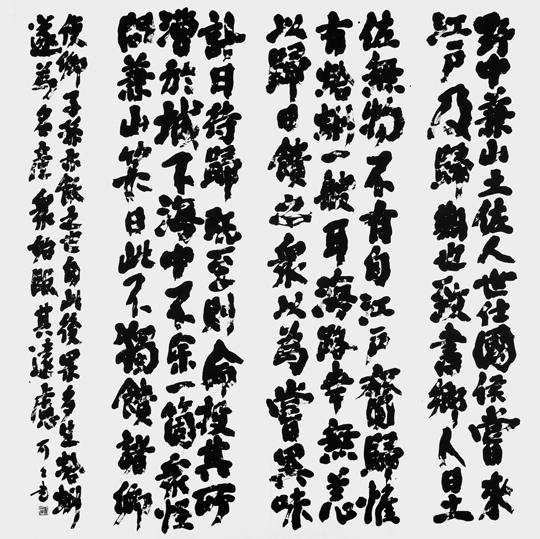 野中兼山土佐人世仕國侯嘗來
江戸及歸期也致書鄉人曰土
佐無物不有自江戸齎歸惟
有蛤蜊一艘耳海路幸無恙
以歸日饋之衆以為嘗異味
計日待歸既至則命投其所
漕於城下海中不余一箇衆怪
問兼山笑曰此不獨饋諸卿
使卿子孫亦飫之云自此後果多生蛤蜊
遂為名產衆始服其遠慮